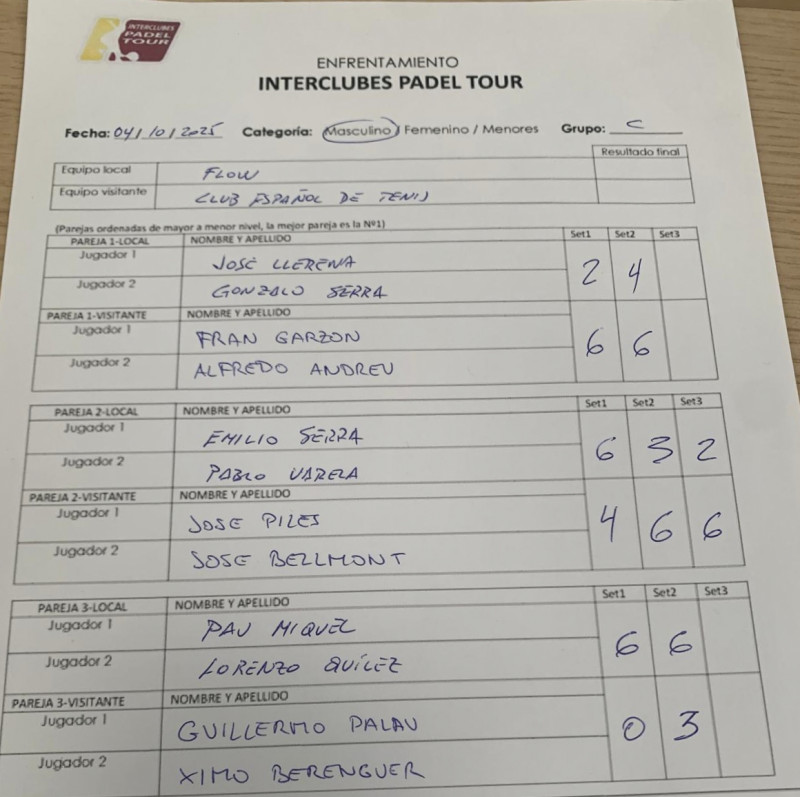 INTERCLUBES
PADEL
TOUR
ENFRENTAMIENTO
INTERCLUBES PADEL TOUR
Fecha: 04/10/2025 Categoría: Masculino / Femenino / Menores Grupo: C
Resultado final
Equipo local FLOW
Equipo visitante CLUB ESPAÑOL DE TENIS
(Parejas ordenadas de mayor a menor nivel, la mejor pareja es la Nº1)
PAREJA 1-LOCAL NOMBRE Y APELLIDO Set1 Set2 Set3
Jugador 1 JOSÉ LLERENA
Jugador 2 GONZALO SERRA
2 4
PAREJA 1-VISITANTE NOMBRE Y APELLIDO
Jugador 1 FRAN GARZON
Jugador 2 ALFREDO ANDREU
6 6
PAREJA 2-LOCAL NOMBRE Y APELLIDO Set1 Set2 Set3
Jugador 1 EMILIO SERRA
Jugador 2 PABLO VARELA
6 3 2
PAREJA 2-VISITANTE NOMBRE Y APELLIDO
Jugador 1 JOSE PILES
Jugador 2 JOSE BELLMONT
4 6 6
PAREJA 3-LOCAL NOMBRE Y APELLIDO Set1 Set2 Set3
Jugador 1 PAU MIQUEL
Jugador 2 LORENZO QUÍLEZ
6 6
PAREJA 3-VISITANTE NOMBRE Y APELLIDO
Jugador 1 GUILLERMO PALAU
Jugador 2 XIMO BERENGUER
0 3